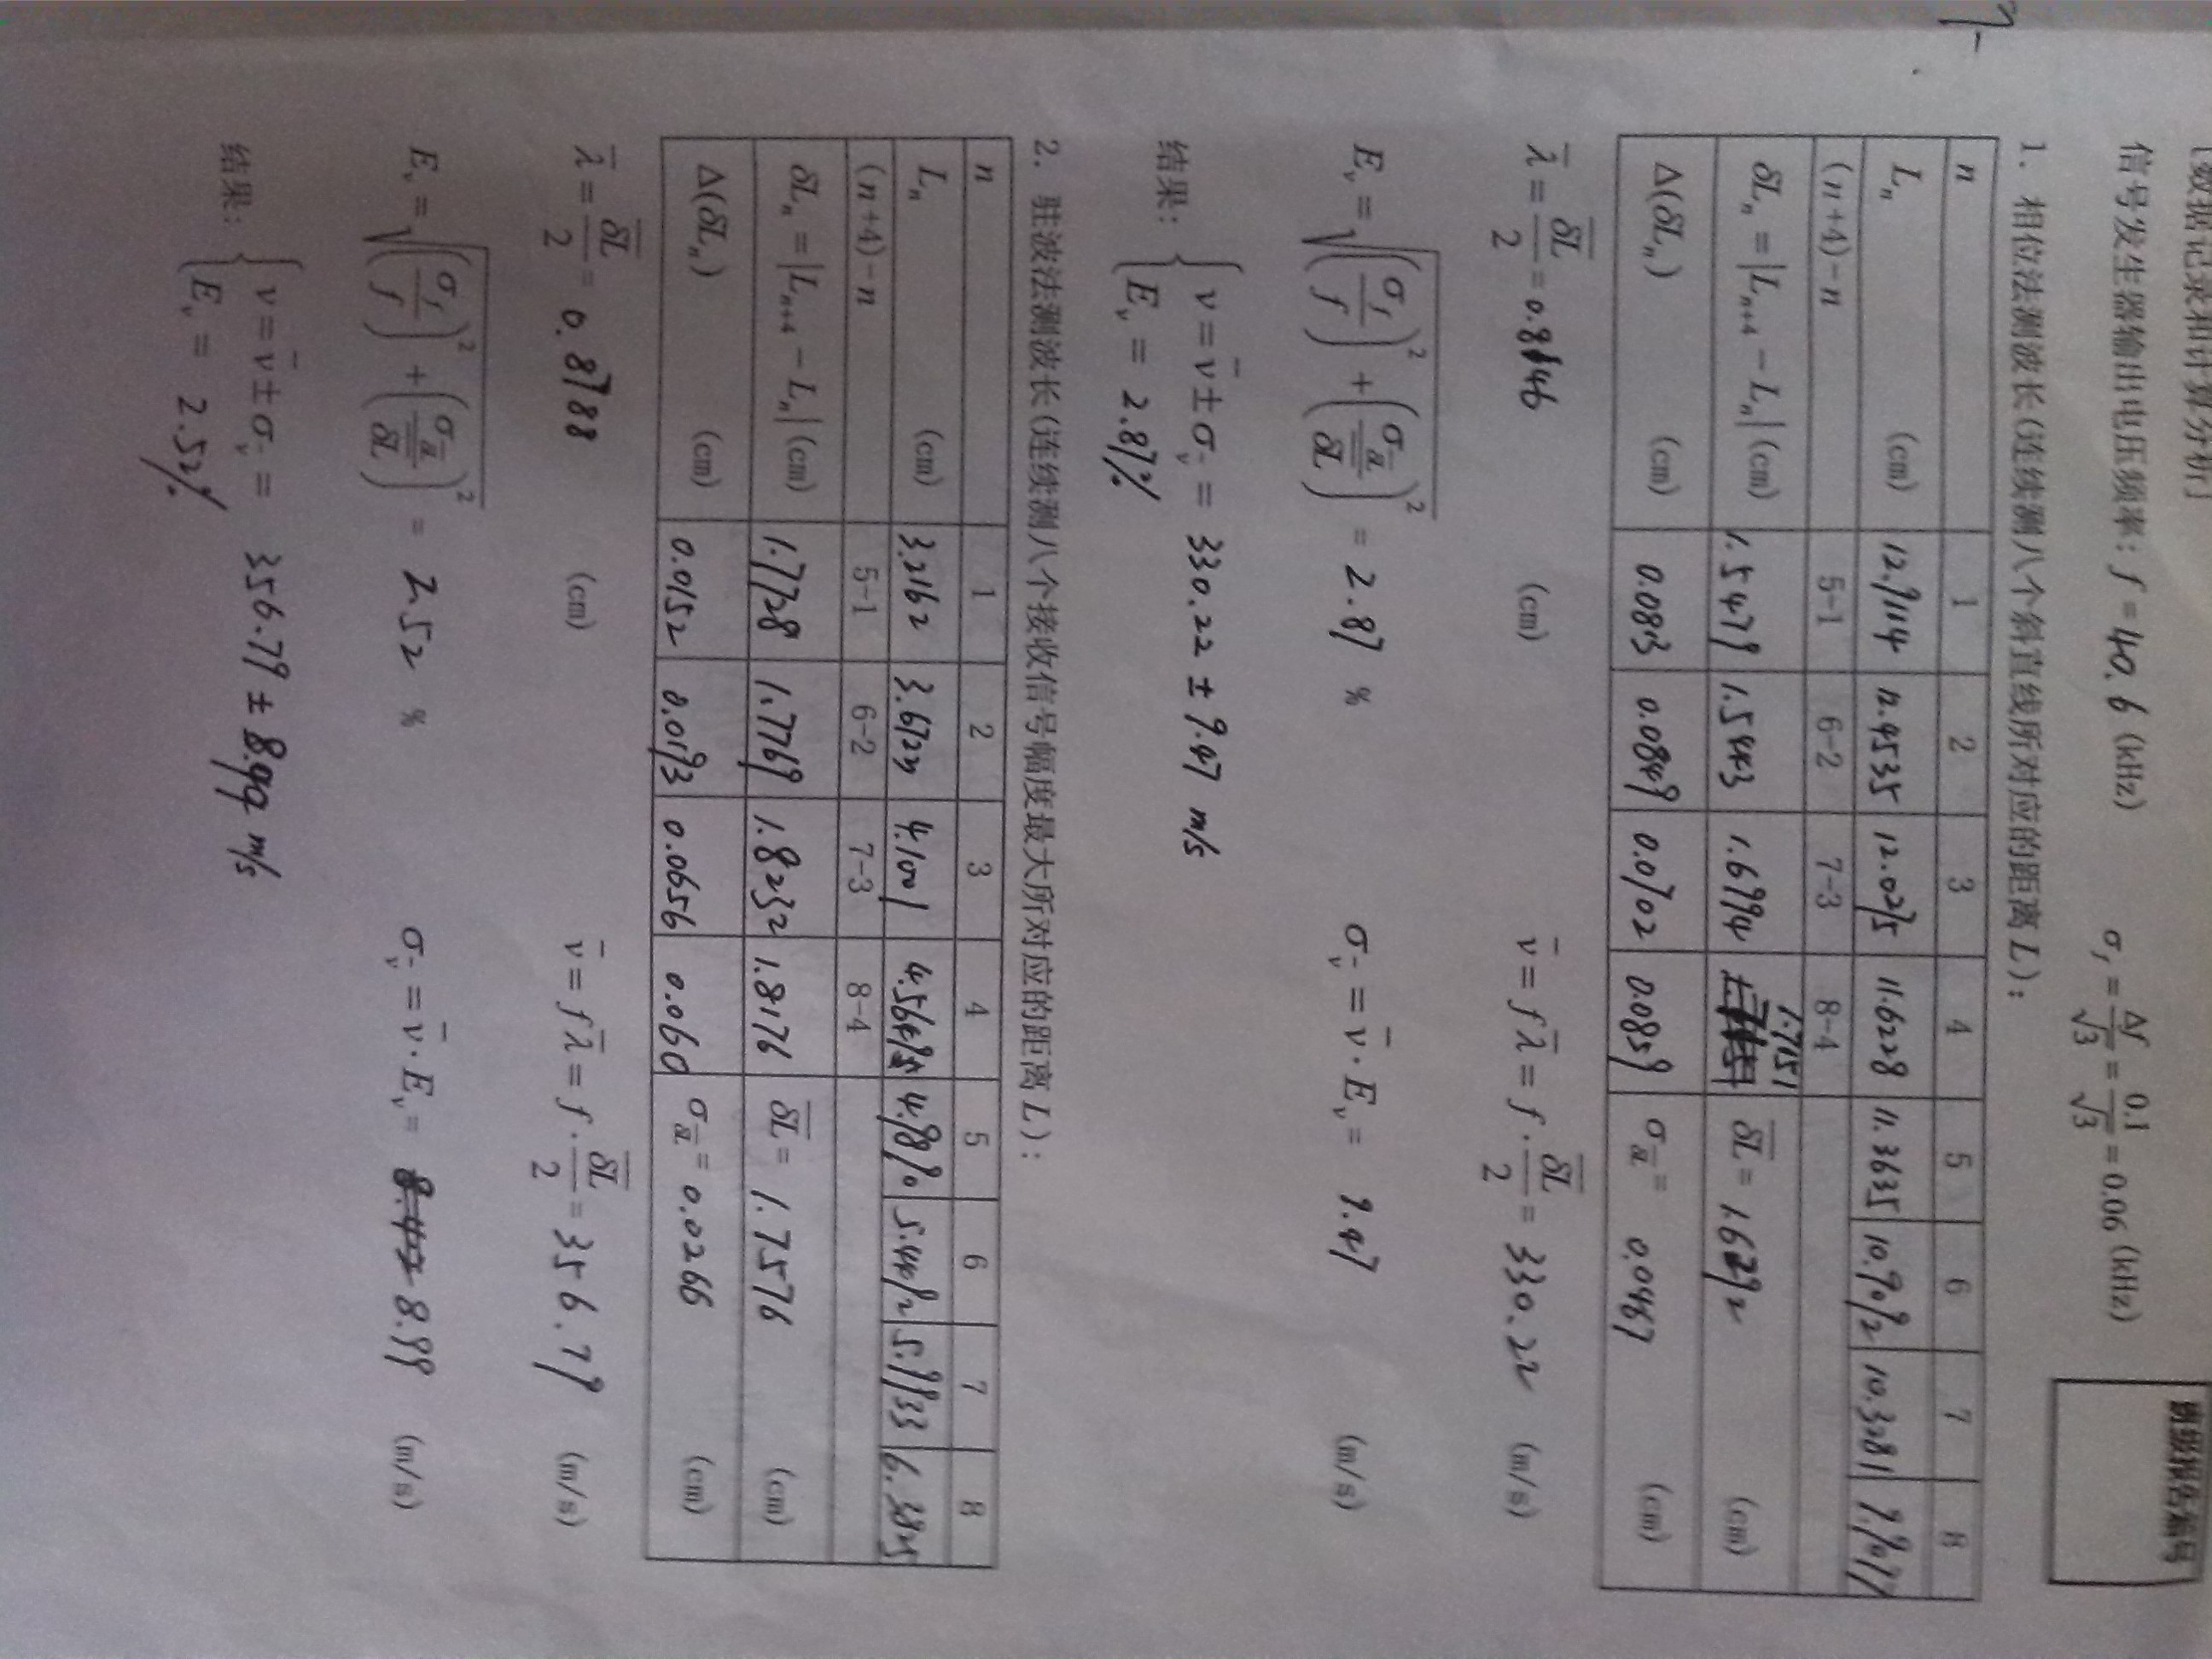 [数据记录和计算分析]
信号发生器输出电压频率: f = 40.6 (kHz) σf = Δf/√3 = 0.1/√3 = 0.06 (kHz)
1. 相位法测波长(连续测八个斜直线所对应的距离 L):
n 1 2 3 4 5 6 7 8
Ln (cm) 12.9114 12.4535 12.0275 11.6228 11.3635 10.9092 10.3281 9.9077
(n+4)-n 5-1 6-2 7-3 8-4
δLn = |Ln+4 - Ln| (cm) 1.5479 1.5443 1.6994 1.7151 δL = 1.6292 (cm)
Δ(δLn) (cm) 0.0813 0.0849 0.0702 0.0859 σδL = 0.0467 (cm)
λ = δL/2 = 0.8146 (cm) v = fλ = f·δL/2 = 330.22 (m/s)
Ev = √((σf/f)² + (σδL/δL)²) = 2.87 % σv = v·Ev = 9.47 (m/s)
结果: { v = v ± σv = 330.22 ± 9.47 m/s
Ev = 2.87%
2. 驻波法测波长(连续测八个接收信号幅度最大所对应的距离 L):
n 1 2 3 4 5 6 7 8
Ln (cm) 3.2162 3.6723 4.1001 4.9890 5.4492 5.9233 6.3825
(n+4)-n 5-1 6-2 7-3 8-4
δLn = |Ln+4 - Ln| (cm) 1.7728 1.7769 1.8232 1.8176 δL = 1.7576 (cm)
Δ(δLn) (cm) 0.0152 0.0193 0.0656 0.060 σδL = 0.0266 (cm)
λ = δL/2 = 0.8788 (cm) v = fλ = f·δL/2 = 356.79 (m/s)
Ev = √((σf/f)² + (σδL/δL)²) = 2.52 % σv = v·Ev = 8.99 (m/s)
结果: { v = v ± σv = 356.79 ± 8.99 m/s
Ev = 2.52%